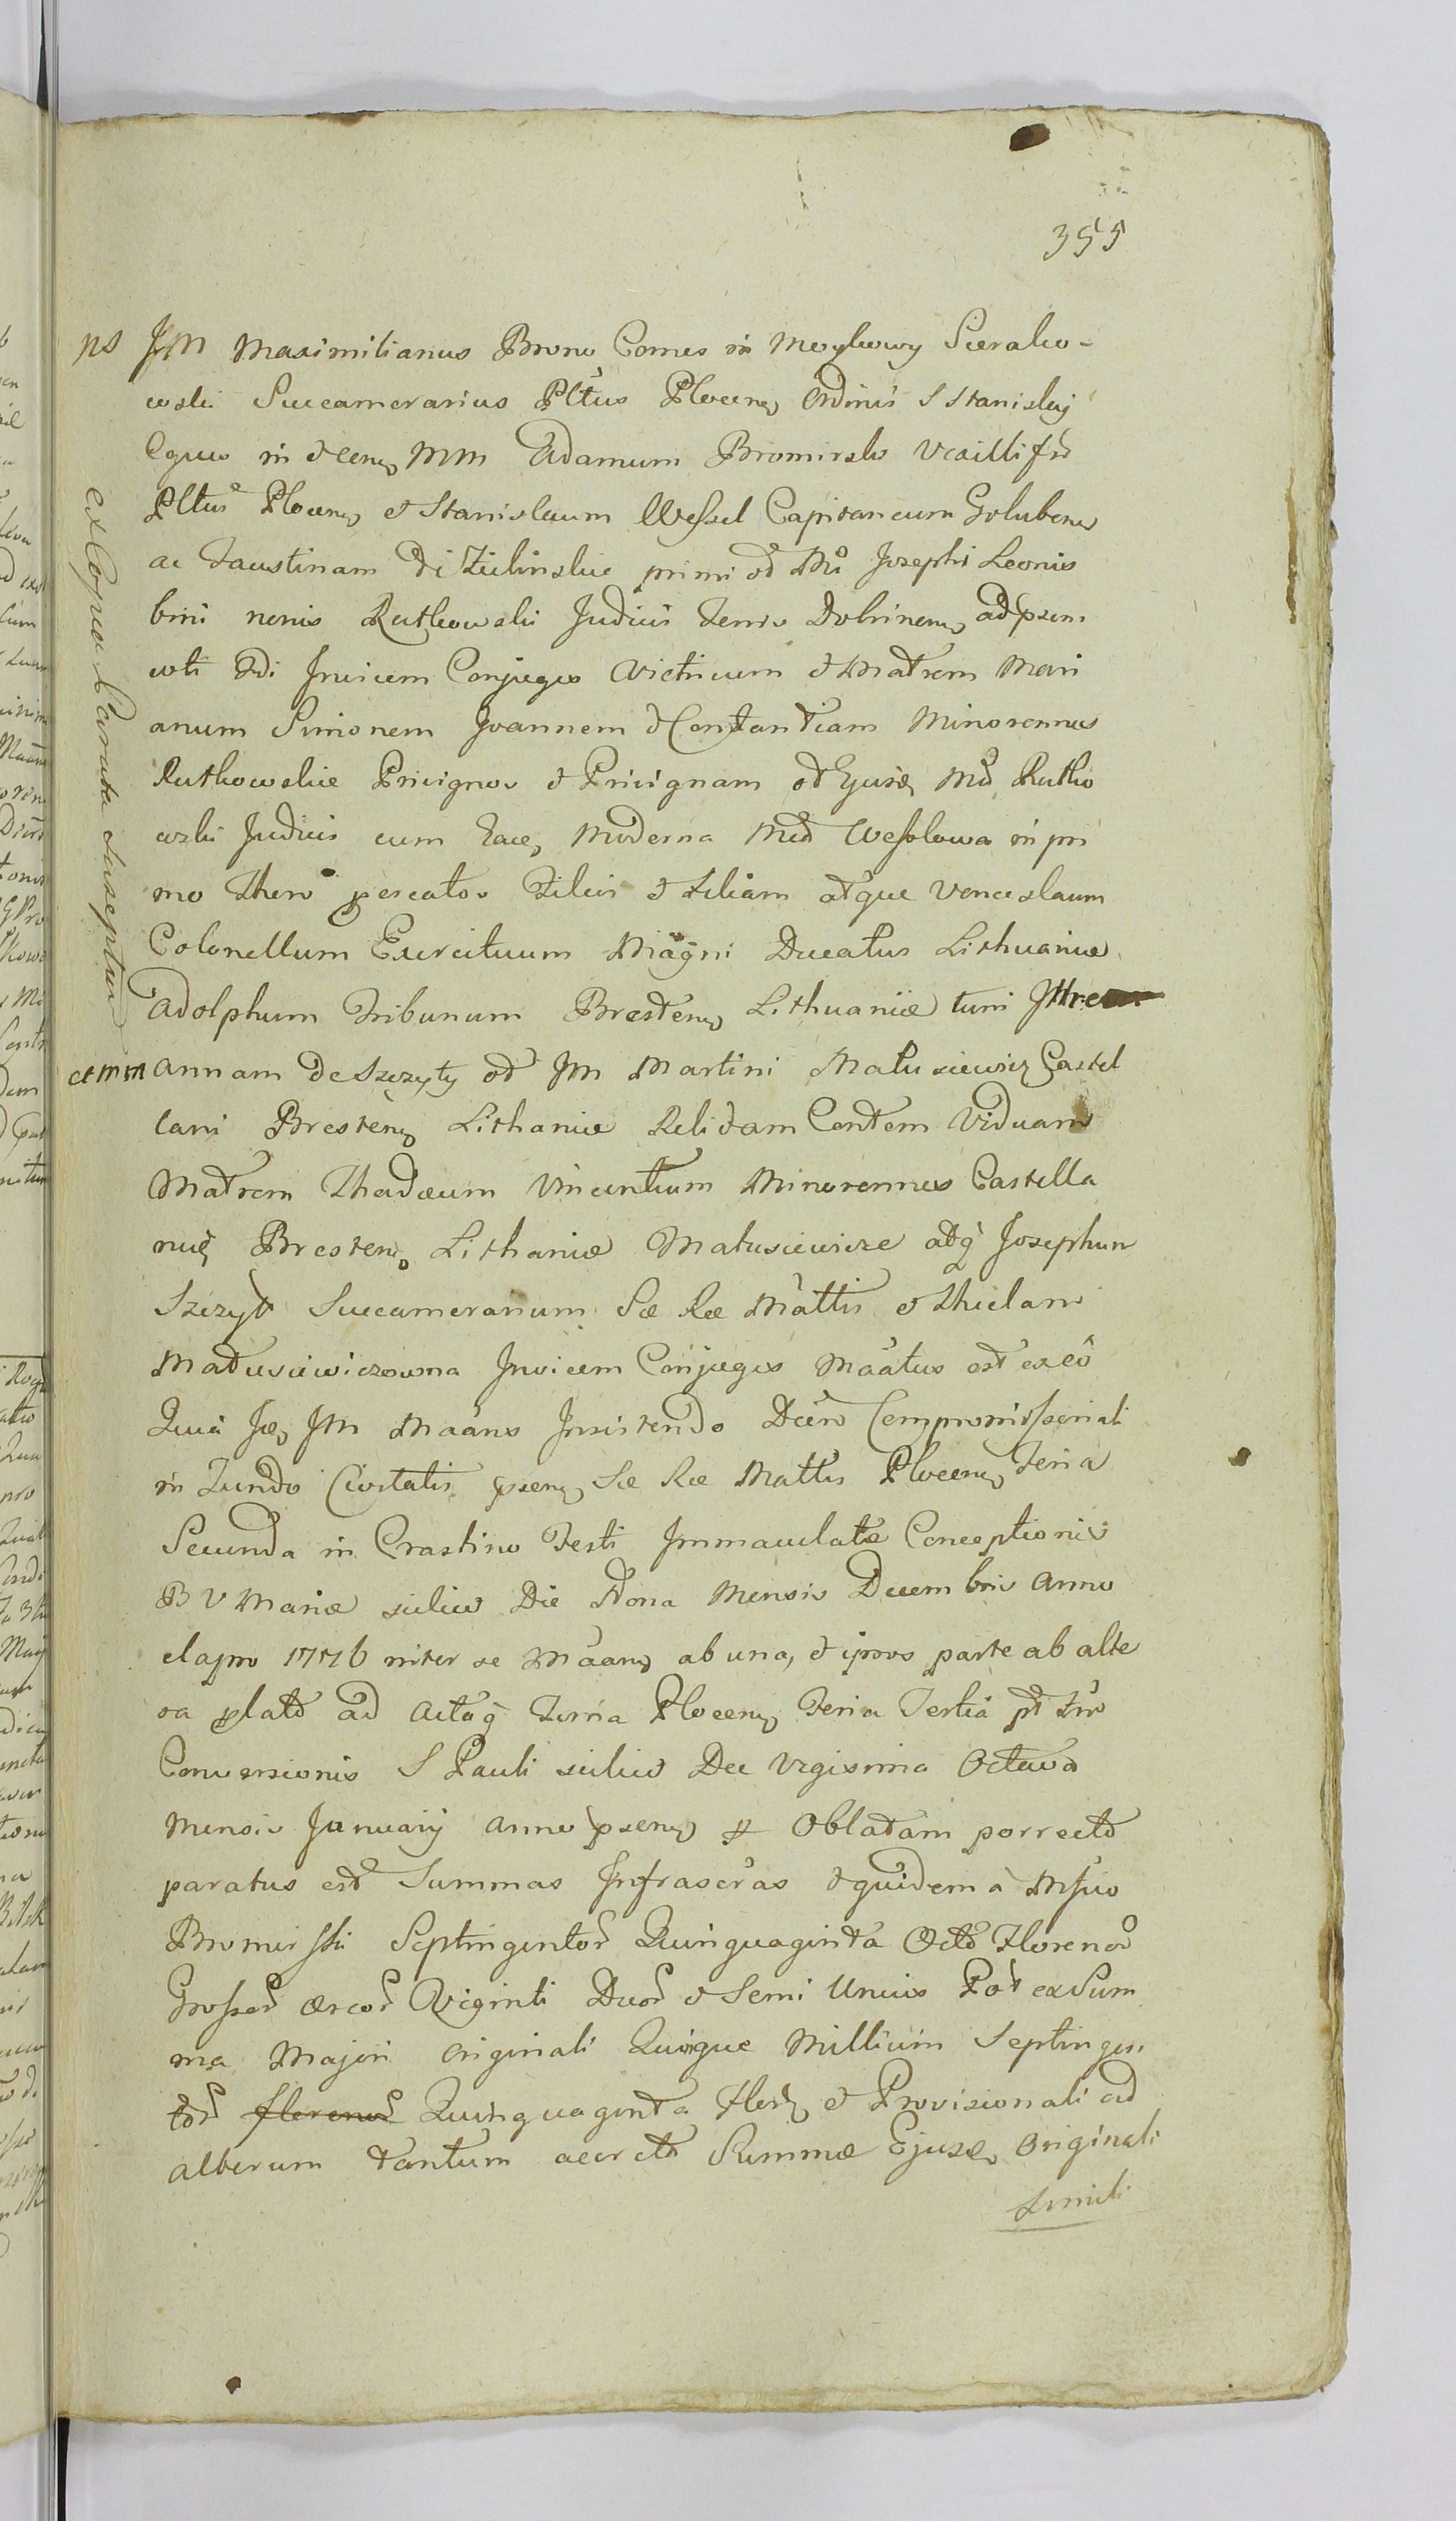 355
ps JM Maximilianus Bruno Comes in Woykowy Sierako-
wski Succamerarius Pltus Plocens Ordinis S Stanislaj
Eques in et cens MM Adamum Bromirski Vexillifrd
Pltus Plocens et Stanislaum Wessel Capitaneum Golubens
ac Faustinam de Zielinskie primi od Mci Josephi Leonis
bini nonis Rutkowski Judicis Terris Dobrinens ad psens
wti 2di Invicem Conjuges Vitricum et Matrem Mari
anum Simonem Joannem et Constantiam Minorennes
Rutkowskie Privignos et Privignam od Ejusd Mci Rutko
wski Judicis cum Eade Moderna Mca Wesslowa in pri
mo Thoro pcreatos Filios et Filiam atque Venceslaum
Colonellum Exercituum Magni Ducatus Lithuaniæ
Adolphum Tribunum Brestens Lithuaniæ tum
et MM Annam de Szczyty od JM Martini Matusiewicz Castel
lani Brestens Lithaniæ Relictam Contem Viduam
Matrem Thadæum Vincentium Minorennes Castella
nid Brestens Lithaniæ Matusiewicze adq Josephum
Szczyt Succamerarium Sæ Ræ Mattis et Theclam
Matusiewiczowna Invicem Conjuges Maatus est ex eo
Quia Jd JM Maans Insistendo Dcro Compromissoriali
in Fundo Civitatis psens Sæ Ræ Mattis Plocens Feria
Secunda in Crastino Festi Immaculatæ Conceptionis
B V Mariæ scilicet Die Nona Mensis Decembris Anno
elapso 1776 inter se Maans ab una, et ipsos parte ab alte
ra plato ad Actaq Terria Plocens Feria Tertia pt Ftm
Conversionis S Pauli scilicet Die Vigesima Octava
Mensis Januarij Anno psens p Oblatam porrecto
paratus est Summas Infrascras et quidem a Msuo
Bromirski Septingentor Quinquaginta Octo Florenor
Grossor æreor Viginti Duor et Semi Unius Pol ex Sum
ma Majori Originali Quinque Millium Septingen
tor florenor Quinquaginta Flor et Provisionali ad
alterum tantum accreto Summæ Ejusd Originali
Simili
Ex Copia Parata susceptum